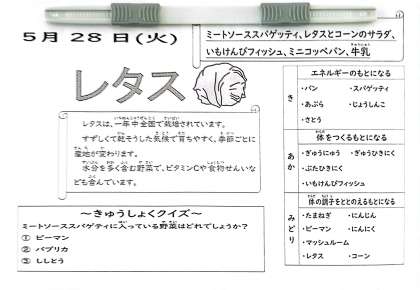 5月28日(火)
ミートソーススパゲッティ、レタスとコーンのサラダ、
いもけんぴフィッシュ、ミニコッペパン、牛乳
レタス
レタスは、一年中全国で栽培されています。
すずしくて乾そうした気候で育ちやすく、季節ごとに
産地が変わります。
水分を多く含む野菜で、ビタミンCや食物せんいな
ども含んでいます。
～きゅうしょくクイズ～
ミートソーススパゲティに入っている野菜はどれでしょうか？
① ピーマン
② パプリカ
③ ししとう
き
エネルギーのもとになる
・パン ・スパゲッティ
・あぶら ・じょうしんこ
・さとう
あか
体をつくるもとになる
・ぎゅうにゅう ・ぎゅうひきにく
・ぶたひきにく
・いもけんぴフィッシュ
みどり
体の調子をととのえるもとになる
・たまねぎ ・にんじん
・ピーマン ・にんにく
・マッシュルーム
・レタス ・コーン